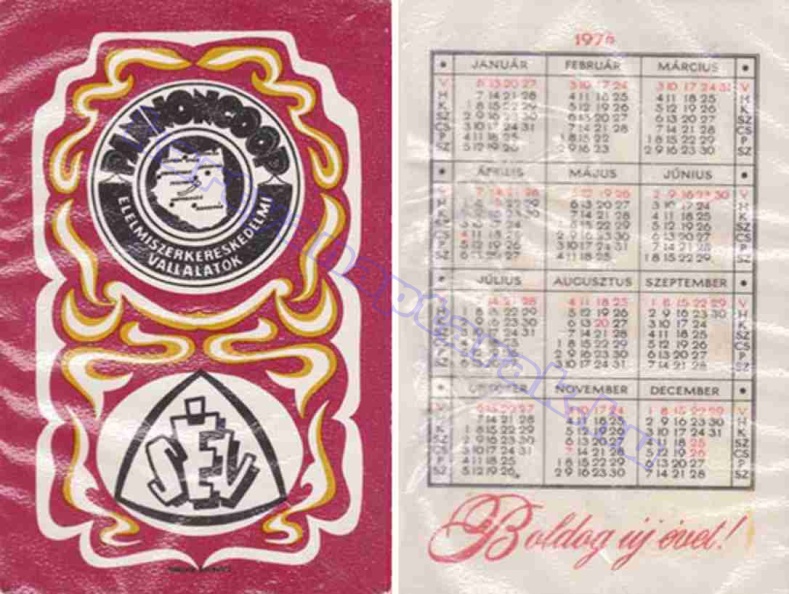 PANNONCOOP
ÉLELMISZERKERESKEDELMI
VÁLLALATOK
SÉV
JANUÁR FEBRUÁR MÁRCIUS
V 6 13 20 27 3 10 17 24 3 10 17 24 31 V
H 7 14 21 28 4 11 18 25 4 11 18 25 H
K 1 8 15 22 29 5 12 19 26 5 12 19 26 K
SZ 2 9 16 23 30 6 13 20 27 6 13 20 27 SZ
CS 3 10 17 24 31 7 14 21 28 7 14 21 28 CS
P 4 11 18 25 1 8 15 22 1 8 15 22 29 P
SZ 5 12 19 26 2 9 16 23 2 9 16 23 30 SZ
ÁPRILIS MÁJUS JÚNIUS
V 7 14 21 28 5 12 19 26 2 9 16 23 30 V
H 1 8 15 22 29 6 13 20 27 3 10 17 24 H
K 2 9 16 23 30 7 14 21 28 4 11 18 25 K
SZ 3 10 17 24 1 8 15 22 29 5 12 19 26 SZ
CS 4 11 18 25 2 9 16 23 30 6 13 20 27 CS
P 5 12 19 26 3 10 17 24 31 7 14 21 28 P
SZ 6 13 20 27 4 11 18 25 1 8 15 22 29 SZ
JÚLIUS AUGUSZTUS SZEPTEMBER
V 7 14 21 28 4 11 18 25 1 8 15 22 29 V
H 1 8 15 22 29 5 12 19 26 2 9 16 23 30 H
K 2 9 16 23 30 6 13 20 27 3 10 17 24 K
SZ 3 10 17 24 31 7 14 21 28 4 11 18 25 SZ
CS 4 11 18 25 1 8 15 22 29 5 12 19 26 CS
P 5 12 19 26 2 9 16 23 30 6 13 20 27 P
SZ 6 13 20 27 3 10 17 24 31 7 14 21 28 SZ
OKTÓBER NOVEMBER DECEMBER
V 6 13 20 27 3 10 17 24 1 8 15 22 29 V
H 7 14 21 28 4 11 18 25 2 9 16 23 30 H
K 1 8 15 22 29 5 12 19 26 3 10 17 24 31 K
SZ 2 9 16 23 30 6 13 20 27 4 11 18 25 SZ
CS 3 10 17 24 31 7 14 21 28 5 12 19 26 CS
P 4 11 18 25 1 8 15 22 29 6 13 20 27 P
SZ 5 12 19 26 2 9 16 23 30 7 14 21 28 SZ
Boldog új évet!